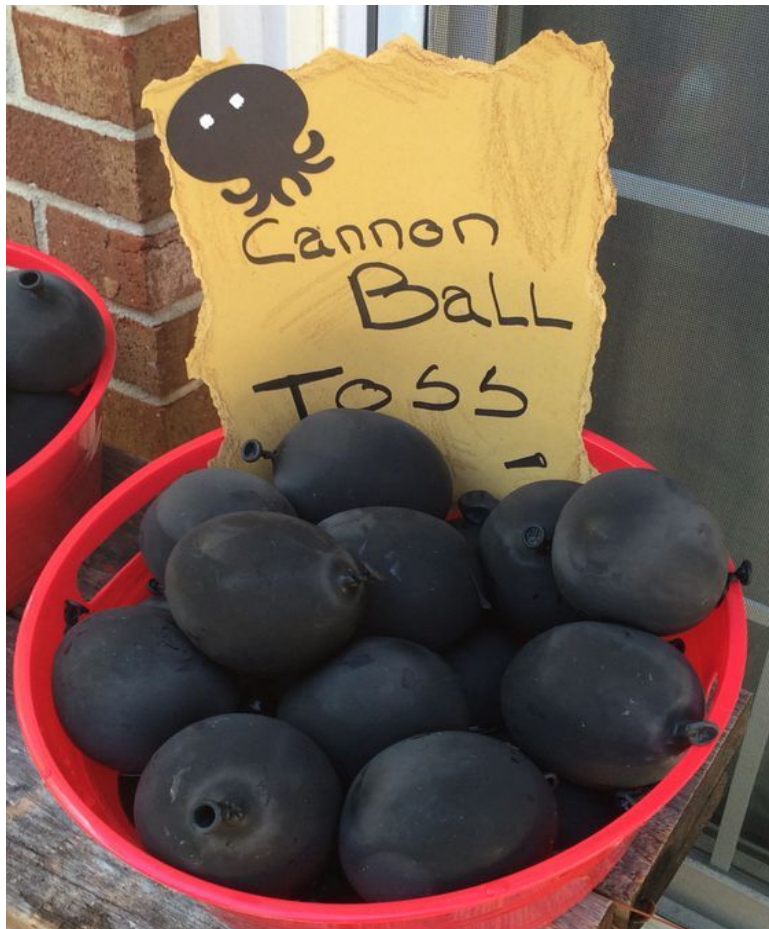 Cannon
BaLL
Toss